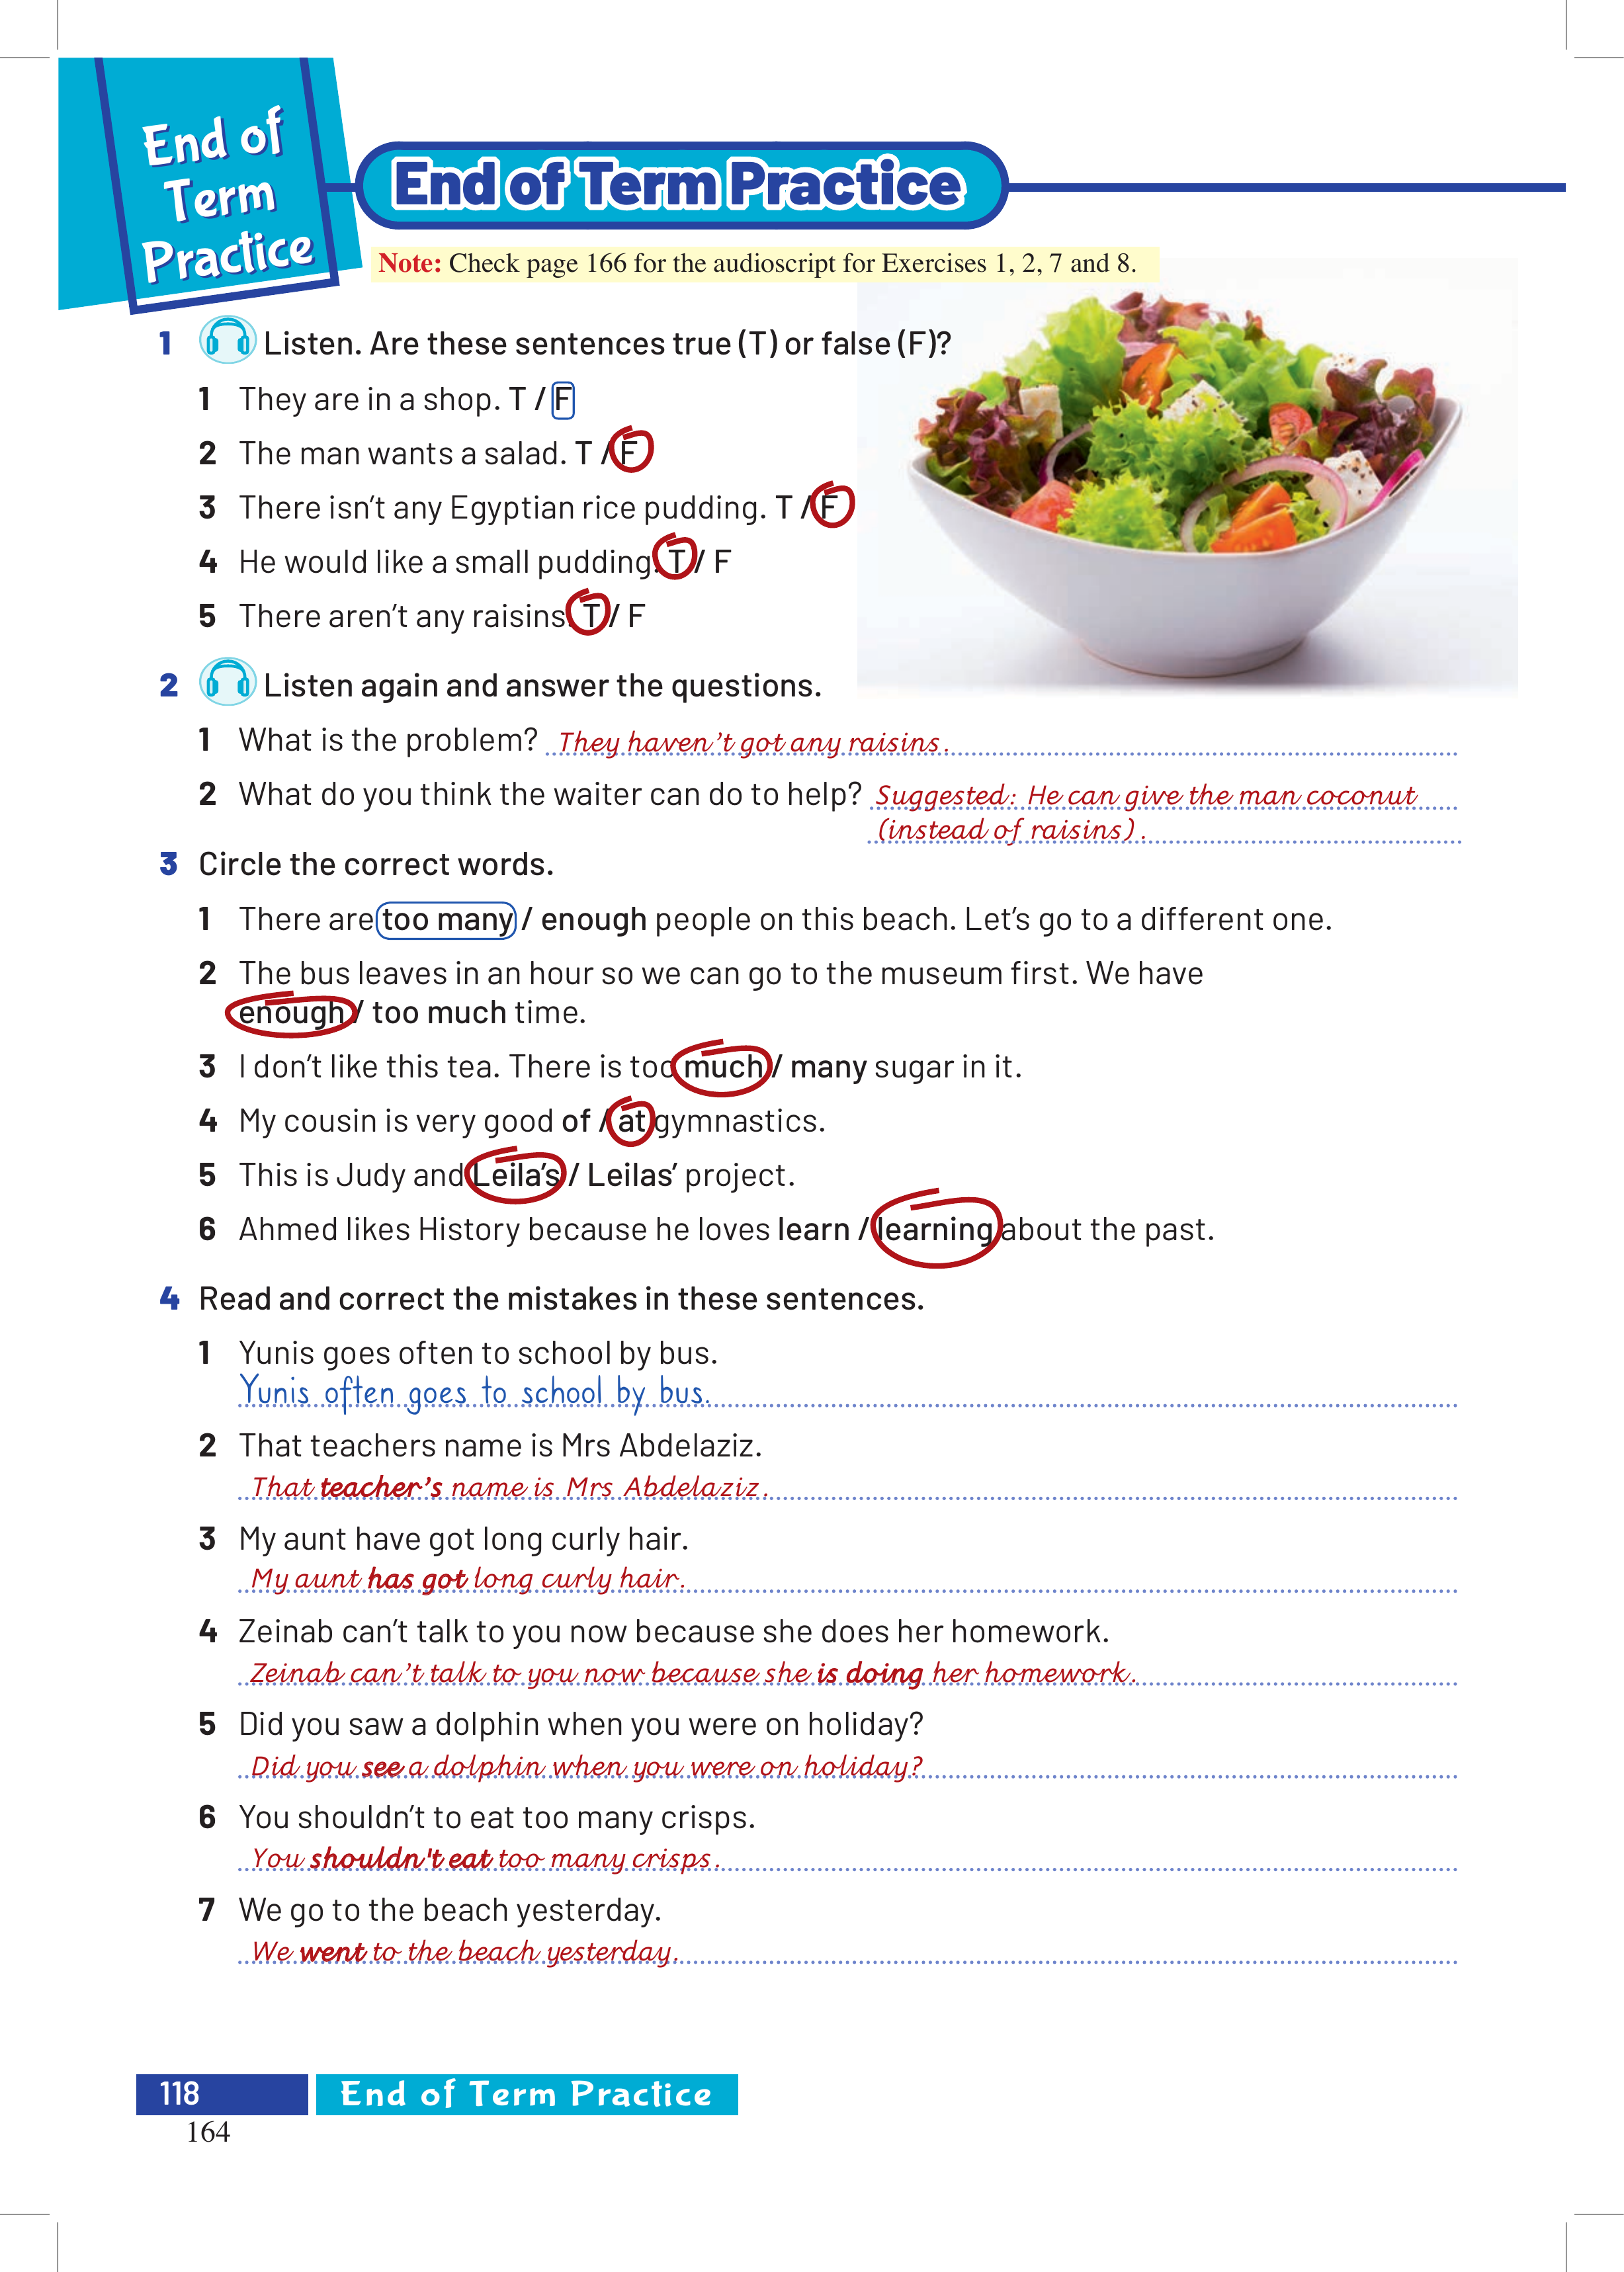 End of
Term
Practice
End of Term Practice
Note: Check page 166 for the audioscript for Exercises 1, 2, 7 and 8.
1 Listen. Are these sentences true (T) or false (F)?
1 They are in a shop. T / F
2 The man wants a salad. T / F
3 There isn't any Egyptian rice pudding. T / F
4 He would like a small pudding. T / F
5 There aren't any raisins. T / F
2 Listen again and answer the questions.
1 What is the problem? They haven't got any raisins.
2 What do you think the waiter can do to help? Suggested: He can give the man coconut
(instead of raisins).
3 Circle the correct words.
1 There are too many / enough people on this beach. Let's go to a different one.
2 The bus leaves in an hour so we can go to the museum first. We have
enough / too much time.
3 I don't like this tea. There is too much / many sugar in it.
4 My cousin is very good of / at gymnastics.
5 This is Judy and Leila's / Leilas' project.
6 Ahmed likes History because he loves learn / learning about the past.
4 Read and correct the mistakes in these sentences.
1 Yunis goes often to school by bus.
Yunis often goes to school by bus.
2 That teachers name is Mrs Abdelaziz.
That teacher's name is Mrs Abdelaziz.
3 My aunt have got long curly hair.
My aunt has got long curly hair.
4 Zeinab can't talk to you now because she does her homework.
Zeinab can't talk to you now because she is doing her homework.
5 Did you saw a dolphin when you were on holiday?
Did you see a dolphin when you were on holiday?
6 You shouldn't to eat too many crisps.
You shouldn't eat too many crisps.
7 We go to the beach yesterday.
We went to the beach yesterday.
118 End of Term Practice
164